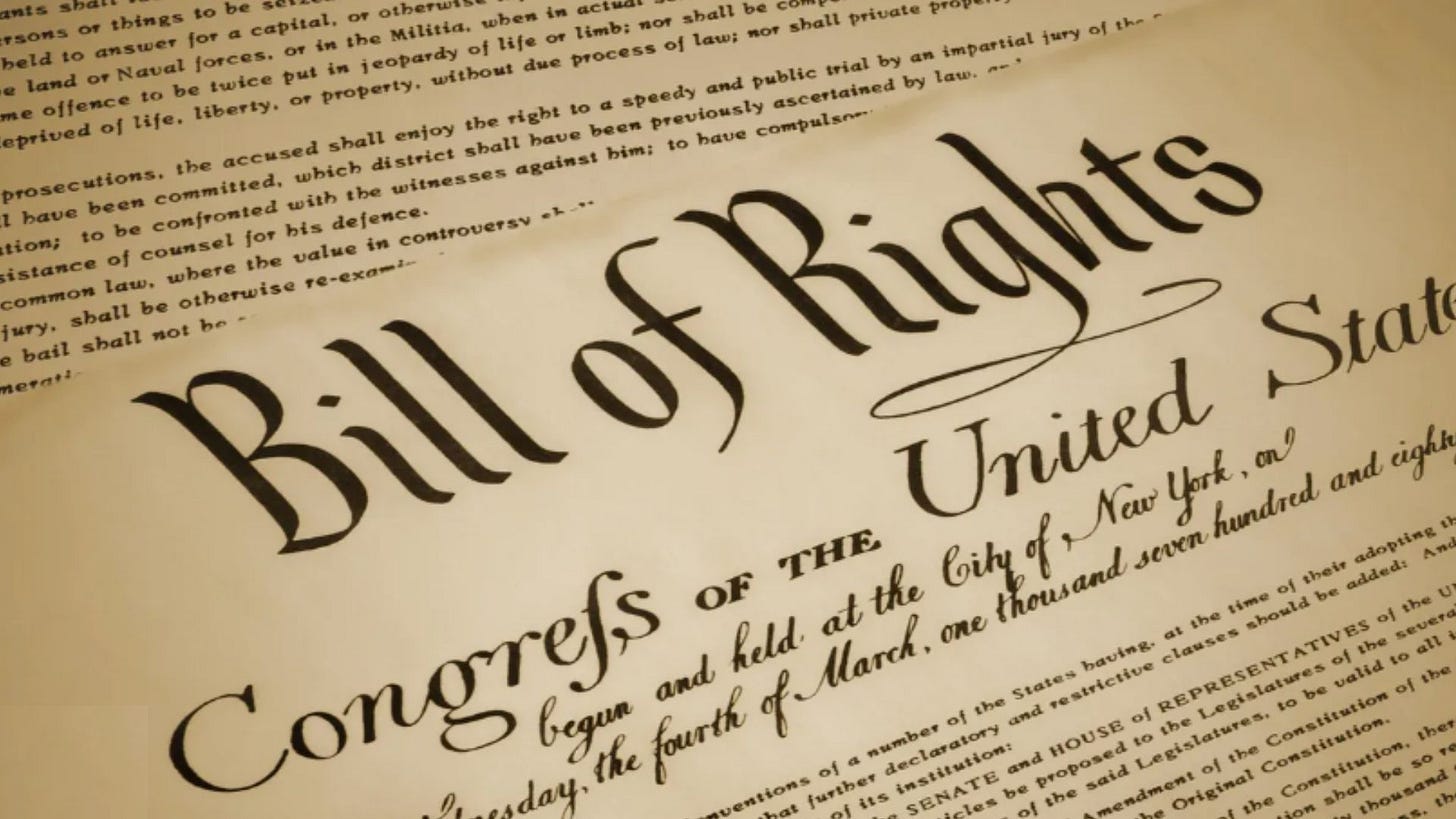 ants shall
ersons or things to be seized
held to answer for a capital, or otherwise
e land or Naval forces, or in the Militia, when in actual
me offence to be twice put in jeopardy of life or limb; nor shall be
deprived of life, liberty, or property, without due process of law; nor shall private
prosecutions, the accused shall enjoy the right to a speedy and public trial by an impartial jury of the
ll have been committed, which district shall have been previously ascertained by law,
ation; to be confronted with the witnesses against him; to have compulsor
sistance of counsel for his defence.
common law, where the value in controversy
jury, shall be otherwise re-exami
e bail shall not be
merati
Bill of Rights
Congreſs OF THE United State
begun and held at the City of New York, on
dnesday, the fourth of March, one thousand seven hundred and eighty
nventions of a number of the States having, at the time of their adopting th
hat further declaratory and restrictive clauses should be added: And
of its institution:
SENATE and HOUSE of REPRESENTATIVES of the U
cles be proposed to the Legislatures of the severa
of the said Legislatures, to be valid to all i
Amendment of the Constitution of the
the Original Constitution.
of the Constitution, ther
tion shall be so re
y thousand